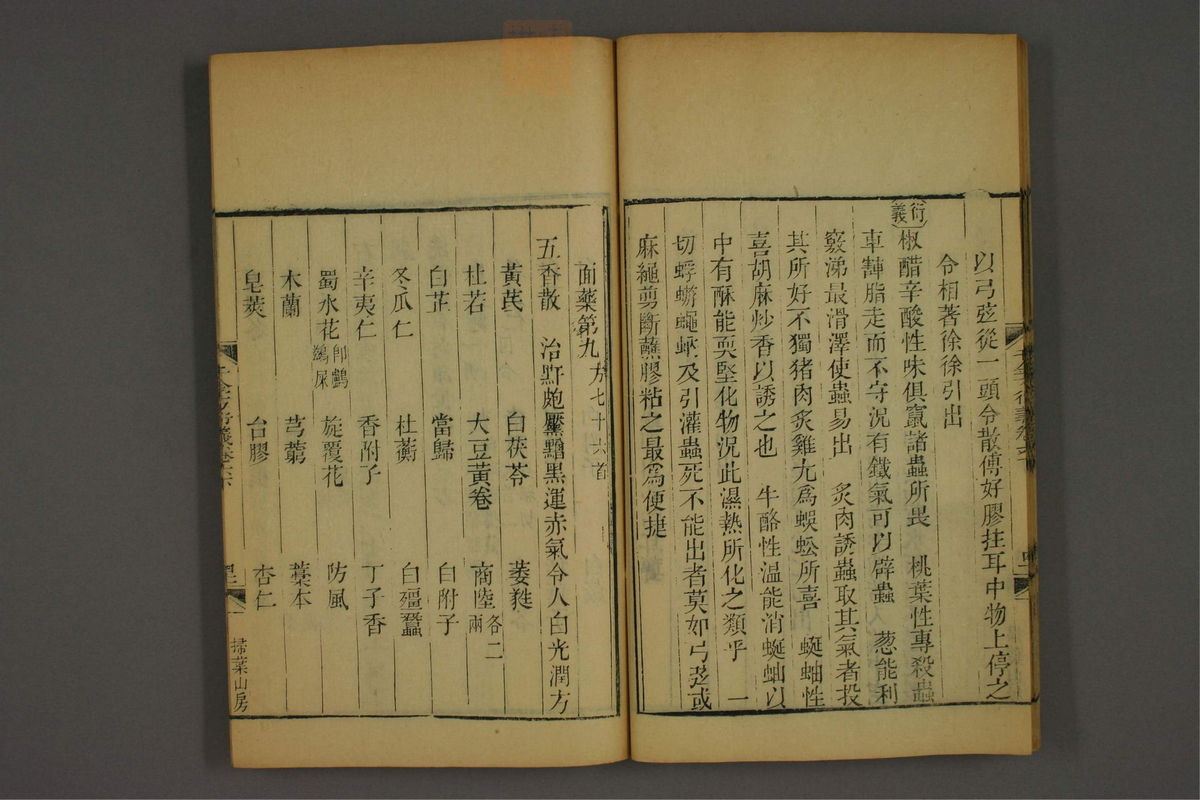 以弓弦從一頭令散傅好膠拄耳中物上停之
令相著徐徐引出
衍義
椒醋辛酸性味俱竄諸蟲所畏　桃葉性專殺蟲
車轊脂走而不守況有鐵氣可以辟蟲　葱能利
竅涕最滑澤使蟲易出　炙肉誘蟲取其氣者投
其所好不獨猪肉炙雞尤爲蜈蚣所喜　蜒蚰性
喜胡麻炒香以誘之也　牛酪性温能消蜒蚰以
中有酥能耎堅化物況此濕熱所化之類乎　一
切蜉蝣蠅蚊及引灌蟲死不能出者莫如弓弦或
麻繩剪斷蘸膠粘之最爲便捷
面藥第九方七十六首
五香散　治䵟皰黶黯黑運赤氣令人白光潤方
黃芪　白茯苓　萎蕤
杜若　大豆黃卷　商陸各二兩
白芷　當歸　白附子
冬瓜仁　杜蘅　白殭蠶
辛夷仁　香附子　丁子香
蜀水花卽鸕鷀屎　旋覆花　防風
木蘭　芎藭　藁本
皂莢　白膠　杏仁
掃葉山房